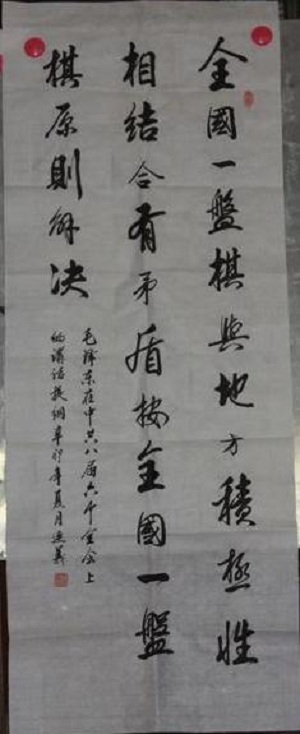 全國一盤棋與地方積極性
相結合有矛盾按全國一盤
棋原則解决
毛泽东在中共八届六中全会上
的講話提綱辛卯年夏月